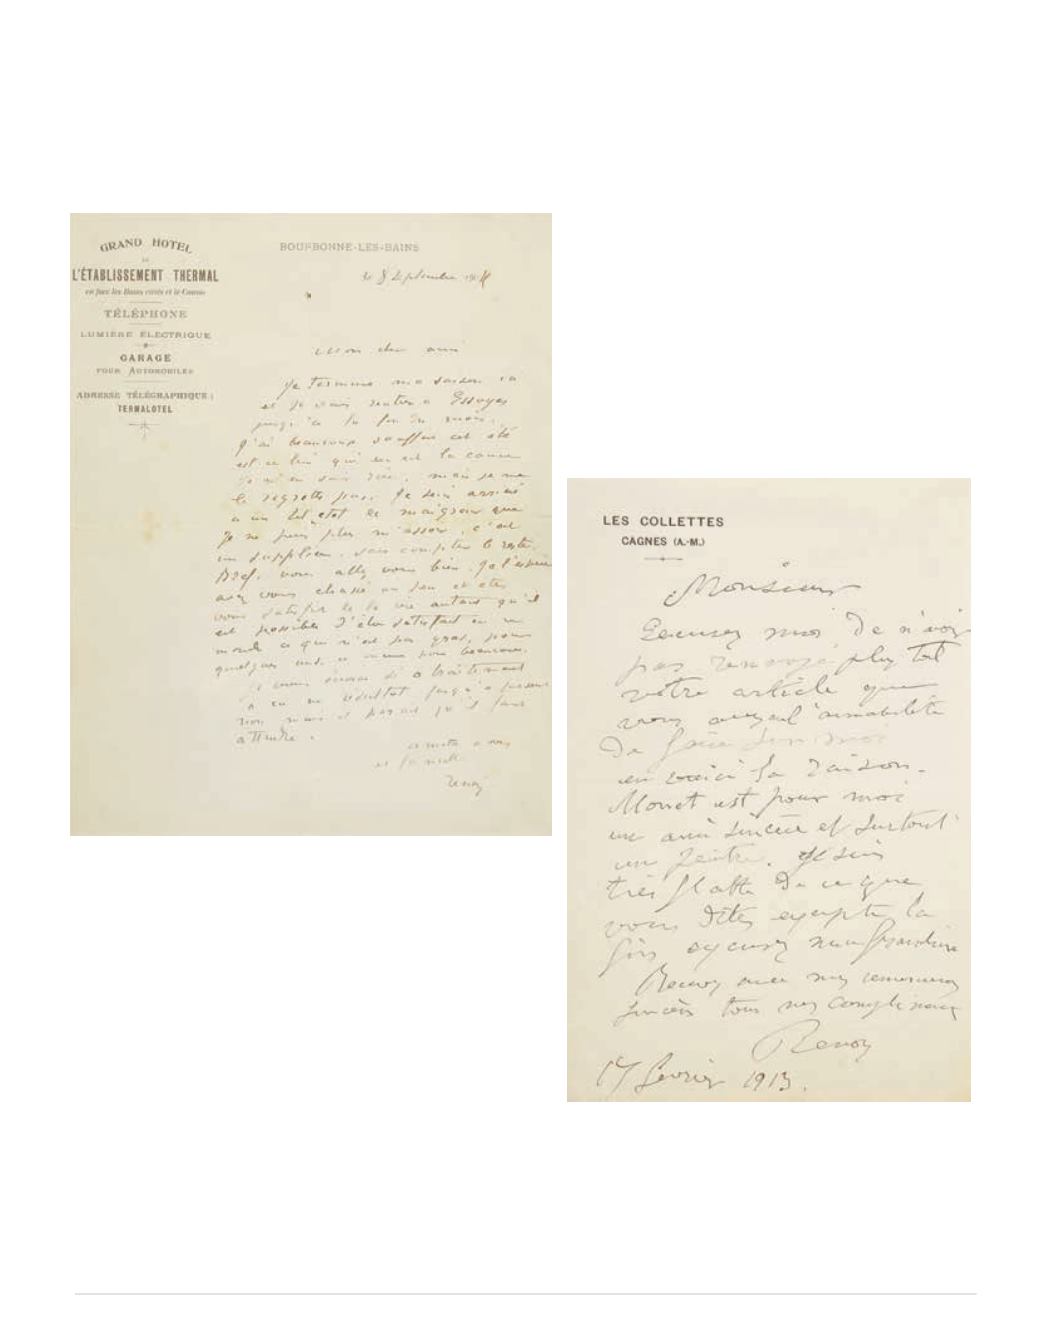 GRAND HOTEL
DE
L'ÉTABLISSEMENT THERMAL
en face les Bains civils et le Casino
TÉLÉPHONE
LUMIÈRE ÉLECTRIQUE
GARAGE
POUR AUTOMOBILES
ADRESSE TÉLÉGRAPHIQUE :
TERMALOTEL
BOURBONNE-LES-BAINS
8 Septembre
Mon cher ami
Je termine ma saison ici
et je vais rentrer a Essoyes
jusqu'a la fin du mois.
J'ai beaucoup souffert cet été
est ce lui qui en est la cause
je n'en sais rien. mais je ne
le regrette pas. Je suis arrivé
a un tel etat de maigreur que
je ne puis plus m'assoir. c'est
un supplice. sans compter le reste.
Bref. vous allez vous bien. je l'espère
avez vous chassé un peu et etes
vous satisfait de la vie autant qu'il
est possible d'être satisfait en ce
monde ce qui n'est pas gras, pour
quelques uns et même pour beaucoup.
a traitement
résultat jusqu'a present
non mais il parait qu'il faut
attendre.
amitié a vous
et famille
Renoir
LES COLLETTES
CAGNES (A.-M.)
Monsieur
Excusez moi de n'avoir
pas renvoyé plus tot
votre article que
vous avez eu l'amabilité
de faire sur moi
en voici la raison.
Monet est pour moi
un ami sincère et surtout
un peintre. Je suis
très flatté de ce que
vous dites excepté la
fin excusez ma franchise
Recevez avec mes remerciements
sincères tous mes compliments
Renoir
17 fevrier 1913.